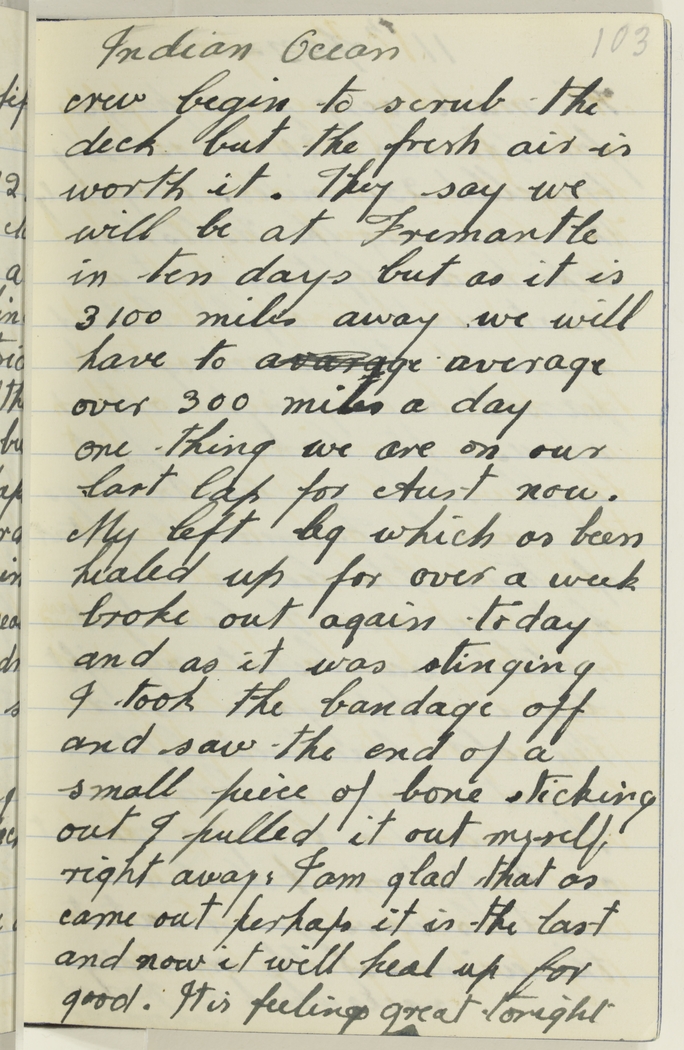 103
Indian Ocean
crew begin to scrub the
deck but the fresh air is
worth it. They say we
will be at Fremantle
in ten days but as it is
3100 miles away we will
have to avarage average
over 300 miles a day
one thing we are on our
last lap for Aust now.
My left leg which as been
healed up for over a week
broke out again today
and as it was stinging
I took the bandage off
and saw the end of a
small peice of bone sticking
out I pulled it out myself
right away; I am glad that as
came out perhaps it is the last
and now it will heal up for
good. It is feeling great tonight